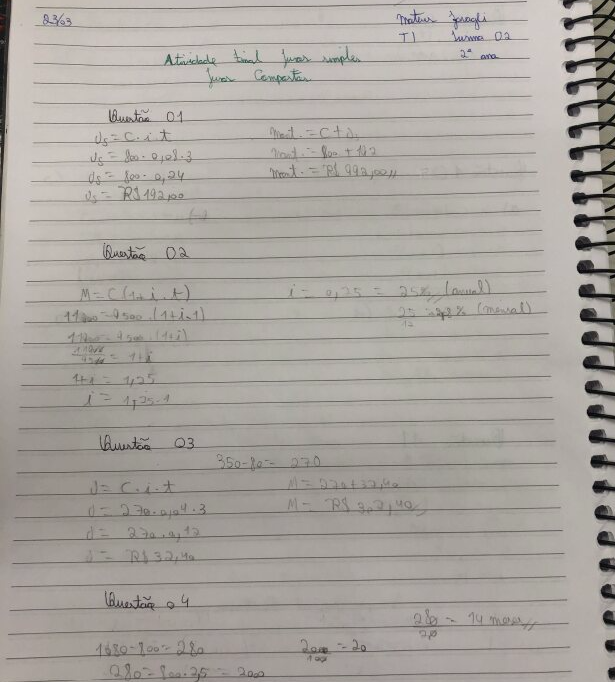 23/03
Mateus
T1 Turma 02
2º ano
Atividade final Juros simples
Juros Compostos
Questão 01
Js = C.i.t
Js = 800.0,08.3
Js = 800.0,24
Js = R$ 192,00
Mont. = C + J
Mont. = 800 + 192
Mont. = R$ 992,00//
Questão 02
M = C(1+i.t)
= 9500.(1+i.1)
= 9500.(1+i)
= 1+i
1+i = 1,25
i = 1,25-1
i = 0,25 = 25%// (anual)
25/12 = % (mensal)
Questão 03
350-80 = 270
J = C.i.t
J = 270.0,04.3
J = 270.0,12
J = R$ 32,40
M = 270+32,40
M = R$ 302,40//
Questão 04
1080-800 = 280
280 = 800.2,5 = 2000
2000/100 = 20
280/20 = 14 meses//